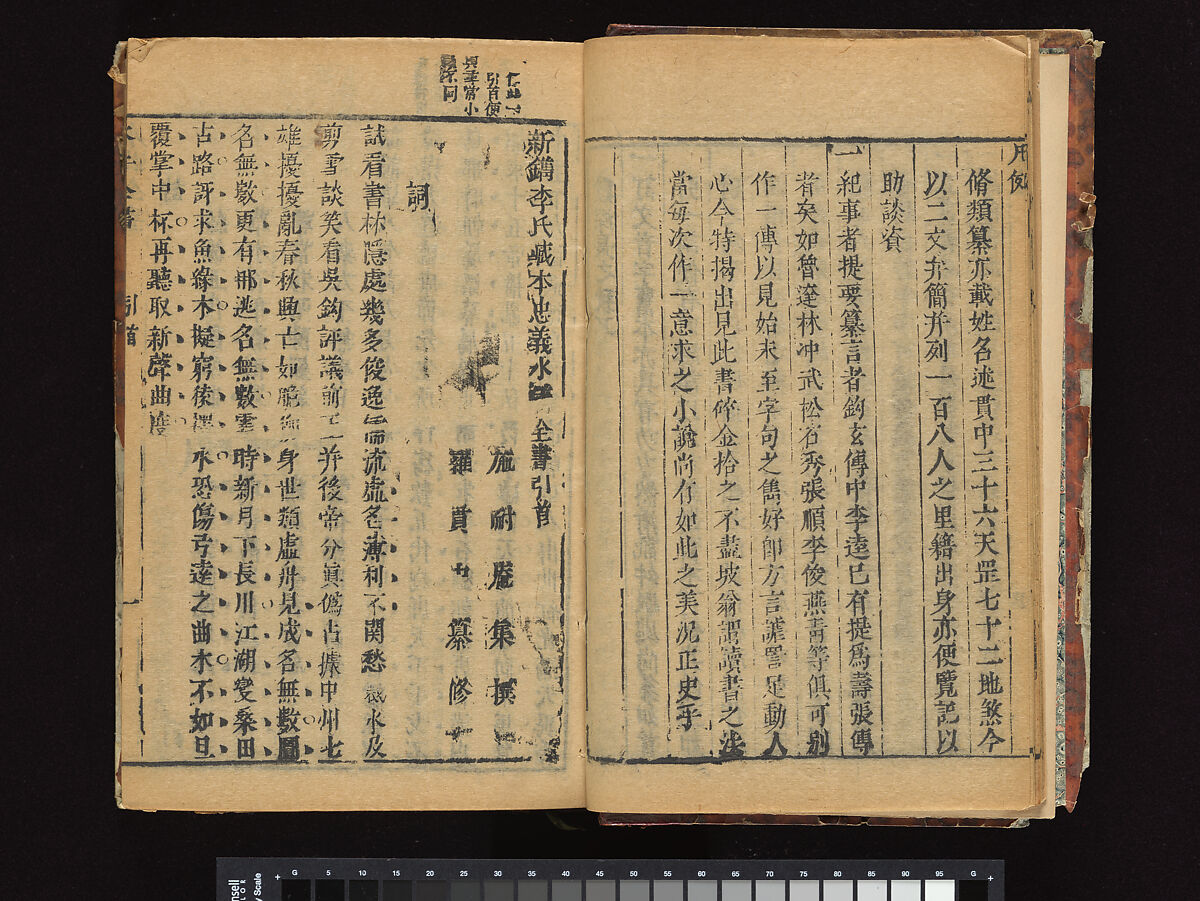 凡例
脩類纂亦載姓名述貫中三十六天罡七十二地煞今
以二文弁簡并列一百八人之里籍出身亦便覽記以
助談資
一紀事者提要纂言者鈎玄傳中李逵已有提為壽張傳
者矣如魯達林冲武松石秀張順李俊燕青等俱可別
作一傳以見始末至字句之雋好即方言謔詈足動人
心今特揭出見此書碎金拾之不盡坡翁謂讀書之法
當每次作一意求之小說尚有如此之美況正史乎
新鐫李氏藏本忠義水滸全書引首
引首便
與事常小
說不同
施耐庵集撰
羅貫中纂修
詞
試看書林隱處幾多俊逸儒流虛名薄利不關愁裁水及
剪雪談笑看吳鈎評議前王并後帝分真偽占據中州七
雄擾擾亂春秋興亡如脆柳身世類虛舟見成名無數圖
名無數更有那逃名無數霎時新月下長川江湖變桑田
古路訝求魚緣木擬窮猿擇木恐傷弓遠之曲木不如且
覆掌中杯再聽取新聲曲度
水滸全書
引首
一